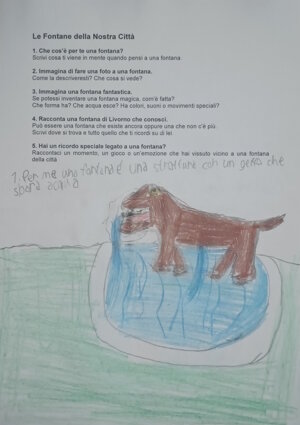 Le Fontane della Nostra Città
1. Che cos'è per te una fontana?
Scrivi cosa ti viene in mente quando pensi a una fontana
2. Immagina di fare una foto a una fontana.
Come la descriveresti? Che cosa si vede?
3. Immagina una fontana fantastica.
Se potessi inventare una fontana magica, com'è fatta?
Che forma ha? Che acqua esce? Ha colori, suoni o movimenti speciali?
4. Racconta una fontana di Livorno che conosci.
Può essere una fontana che esiste ancora oppure una che non c'è più.
Scrivi dove si trova e tutto quello che ti ricordi su di lei
5. Hai un ricordo speciale legato a una fontana?
Raccontaci un momento, un gioco o un'emozione che hai vissuto vicino a una fontana
della città
1. Per me una fontana è una con un che
spara acqua